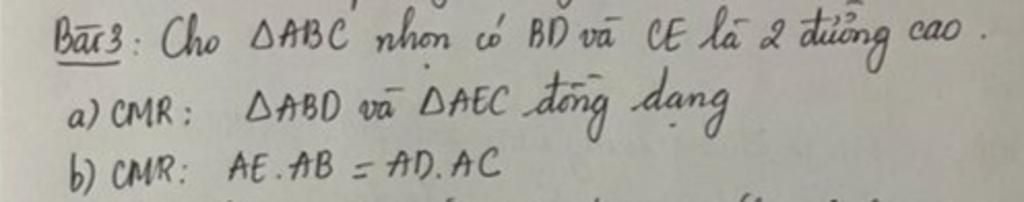 Bài 3: Cho △ABC nhọn có BD và CE là 2 đường cao.
a) CMR: △ABD và △AEC đồng dạng
b) CMR: AE.AB = AD.AC